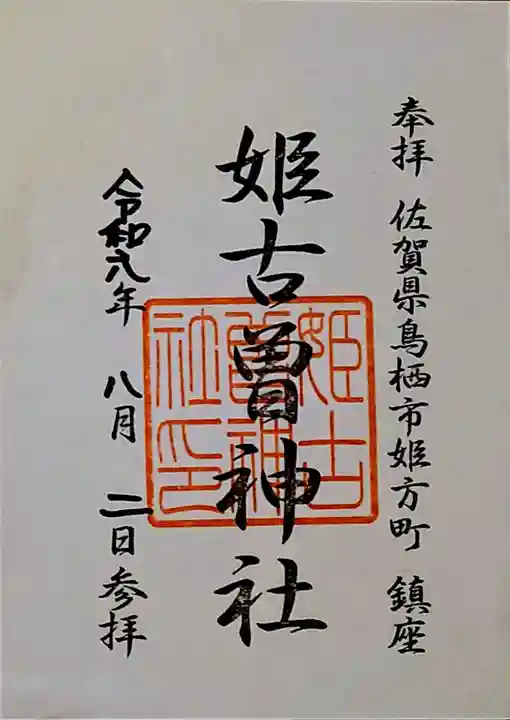 奉拝 佐賀県鳥栖市姫方町 鎮座
姫古曽神社
令和八年 八月 二日参拝
姫古
曽神
社印